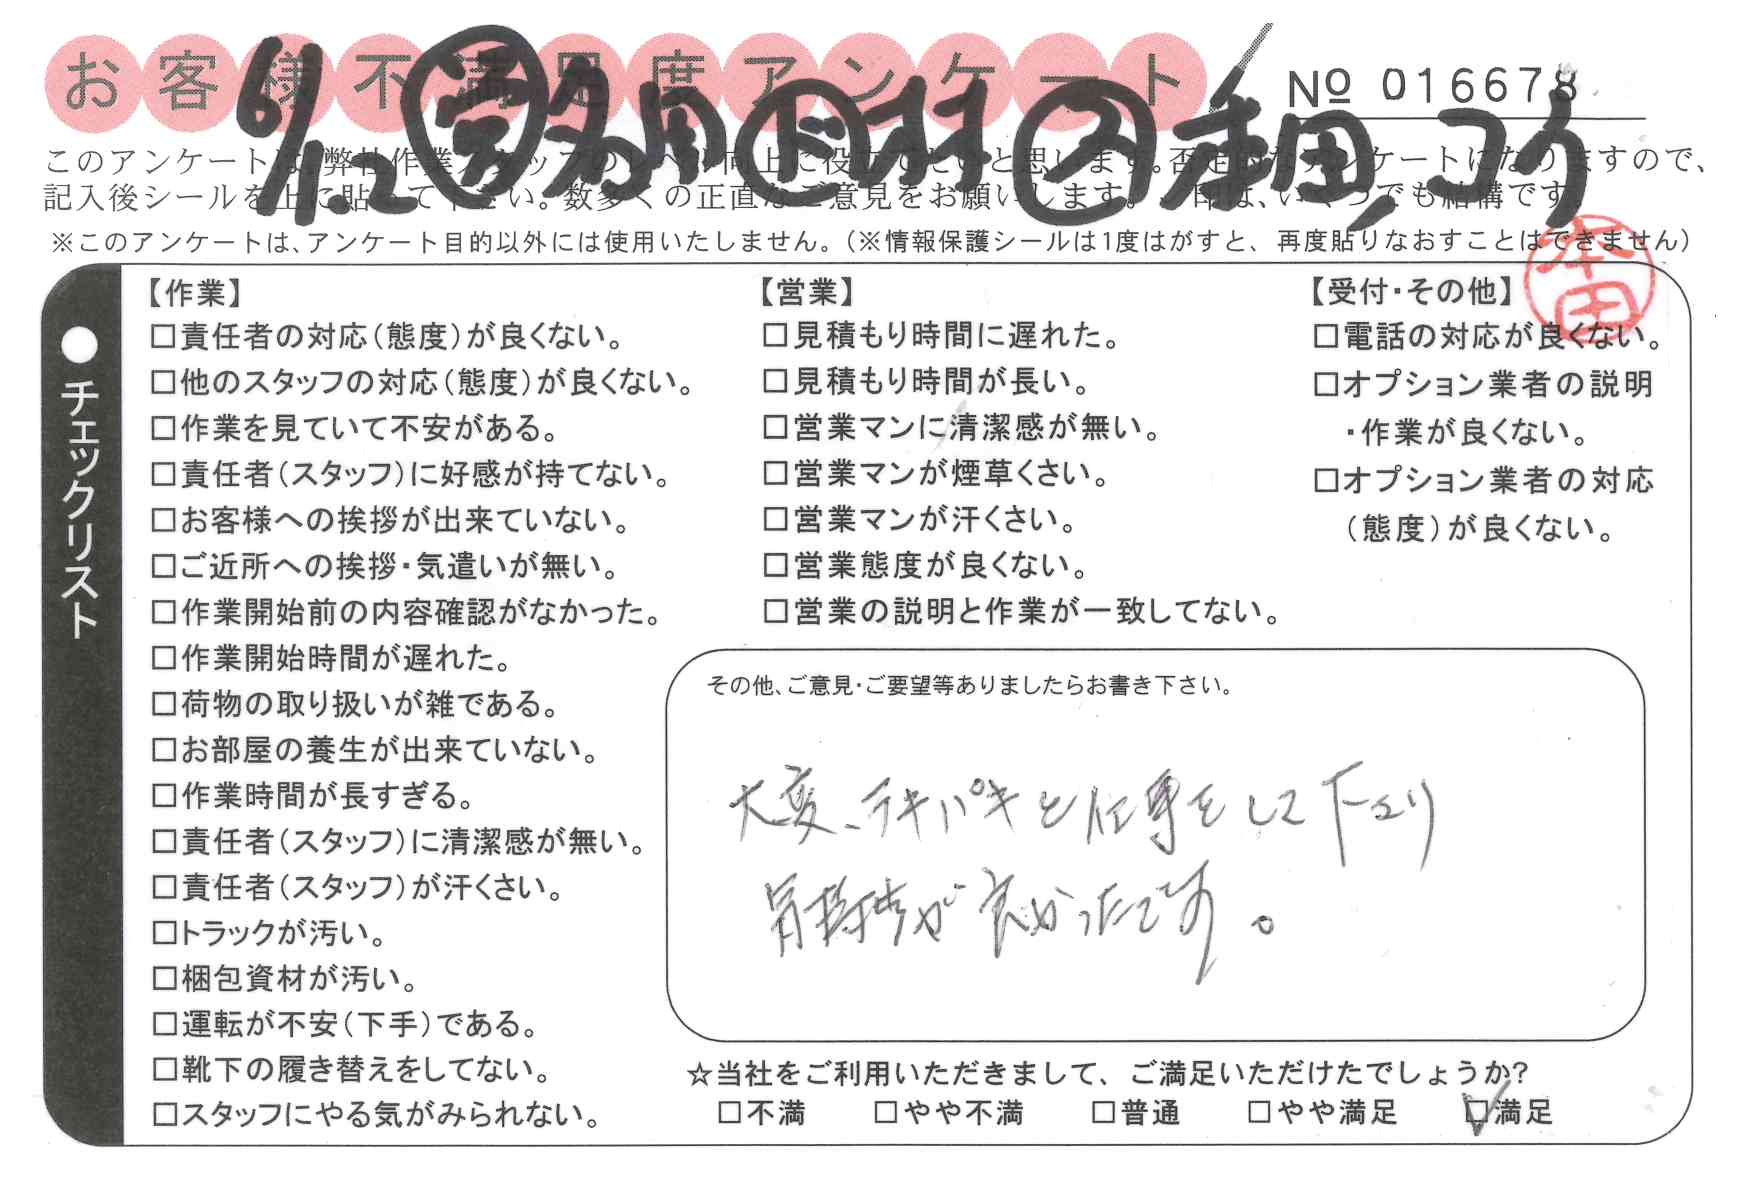 お客様不満足度アンケート
№ 016678
6/12
このアンケートは、弊社作業スタッフのレベル向上に役立てたいと思います。否定的なアンケートになりますので、
記入後シールを上に貼って下さい。数多くの正直なご意見をお願いします。レ印は、いくつでも結構です。
※このアンケートは、アンケート目的以外には使用いたしません。(※情報保護シールは1度はがすと、再度貼りなおすことはできません)
本田
●チェックリスト
【作業】
□責任者の対応(態度)が良くない。
□他のスタッフの対応(態度)が良くない。
□作業を見ていて不安がある。
□責任者(スタッフ)に好感が持てない。
□お客様への挨拶が出来ていない。
□ご近所への挨拶・気遣いが無い。
□作業開始前の内容確認がなかった。
□作業開始時間が遅れた。
□荷物の取り扱いが雑である。
□お部屋の養生が出来ていない。
□作業時間が長すぎる。
□責任者(スタッフ)に清潔感が無い。
□責任者(スタッフ)が汗くさい。
□トラックが汚い。
□梱包資材が汚い。
□運転が不安(下手)である。
□靴下の履き替えをしてない。
□スタッフにやる気がみられない。
【営業】
□見積もり時間に遅れた。
□見積もり時間が長い。
□営業マンに清潔感が無い。
□営業マンが煙草くさい。
□営業マンが汗くさい。
□営業態度が良くない。
□営業の説明と作業が一致してない。
【受付・その他】
□電話の対応が良くない。
□オプション業者の説明
・作業が良くない。
□オプション業者の対応
(態度)が良くない。
その他、ご意見・ご要望等ありましたらお書き下さい。
大変、テキパキと仕事をして下さり
気持ちが良かったです。
☆当社をご利用いただきまして、ご満足いただけたでしょうか?
□不満 □やや不満 □普通 □やや満足 ☑満足